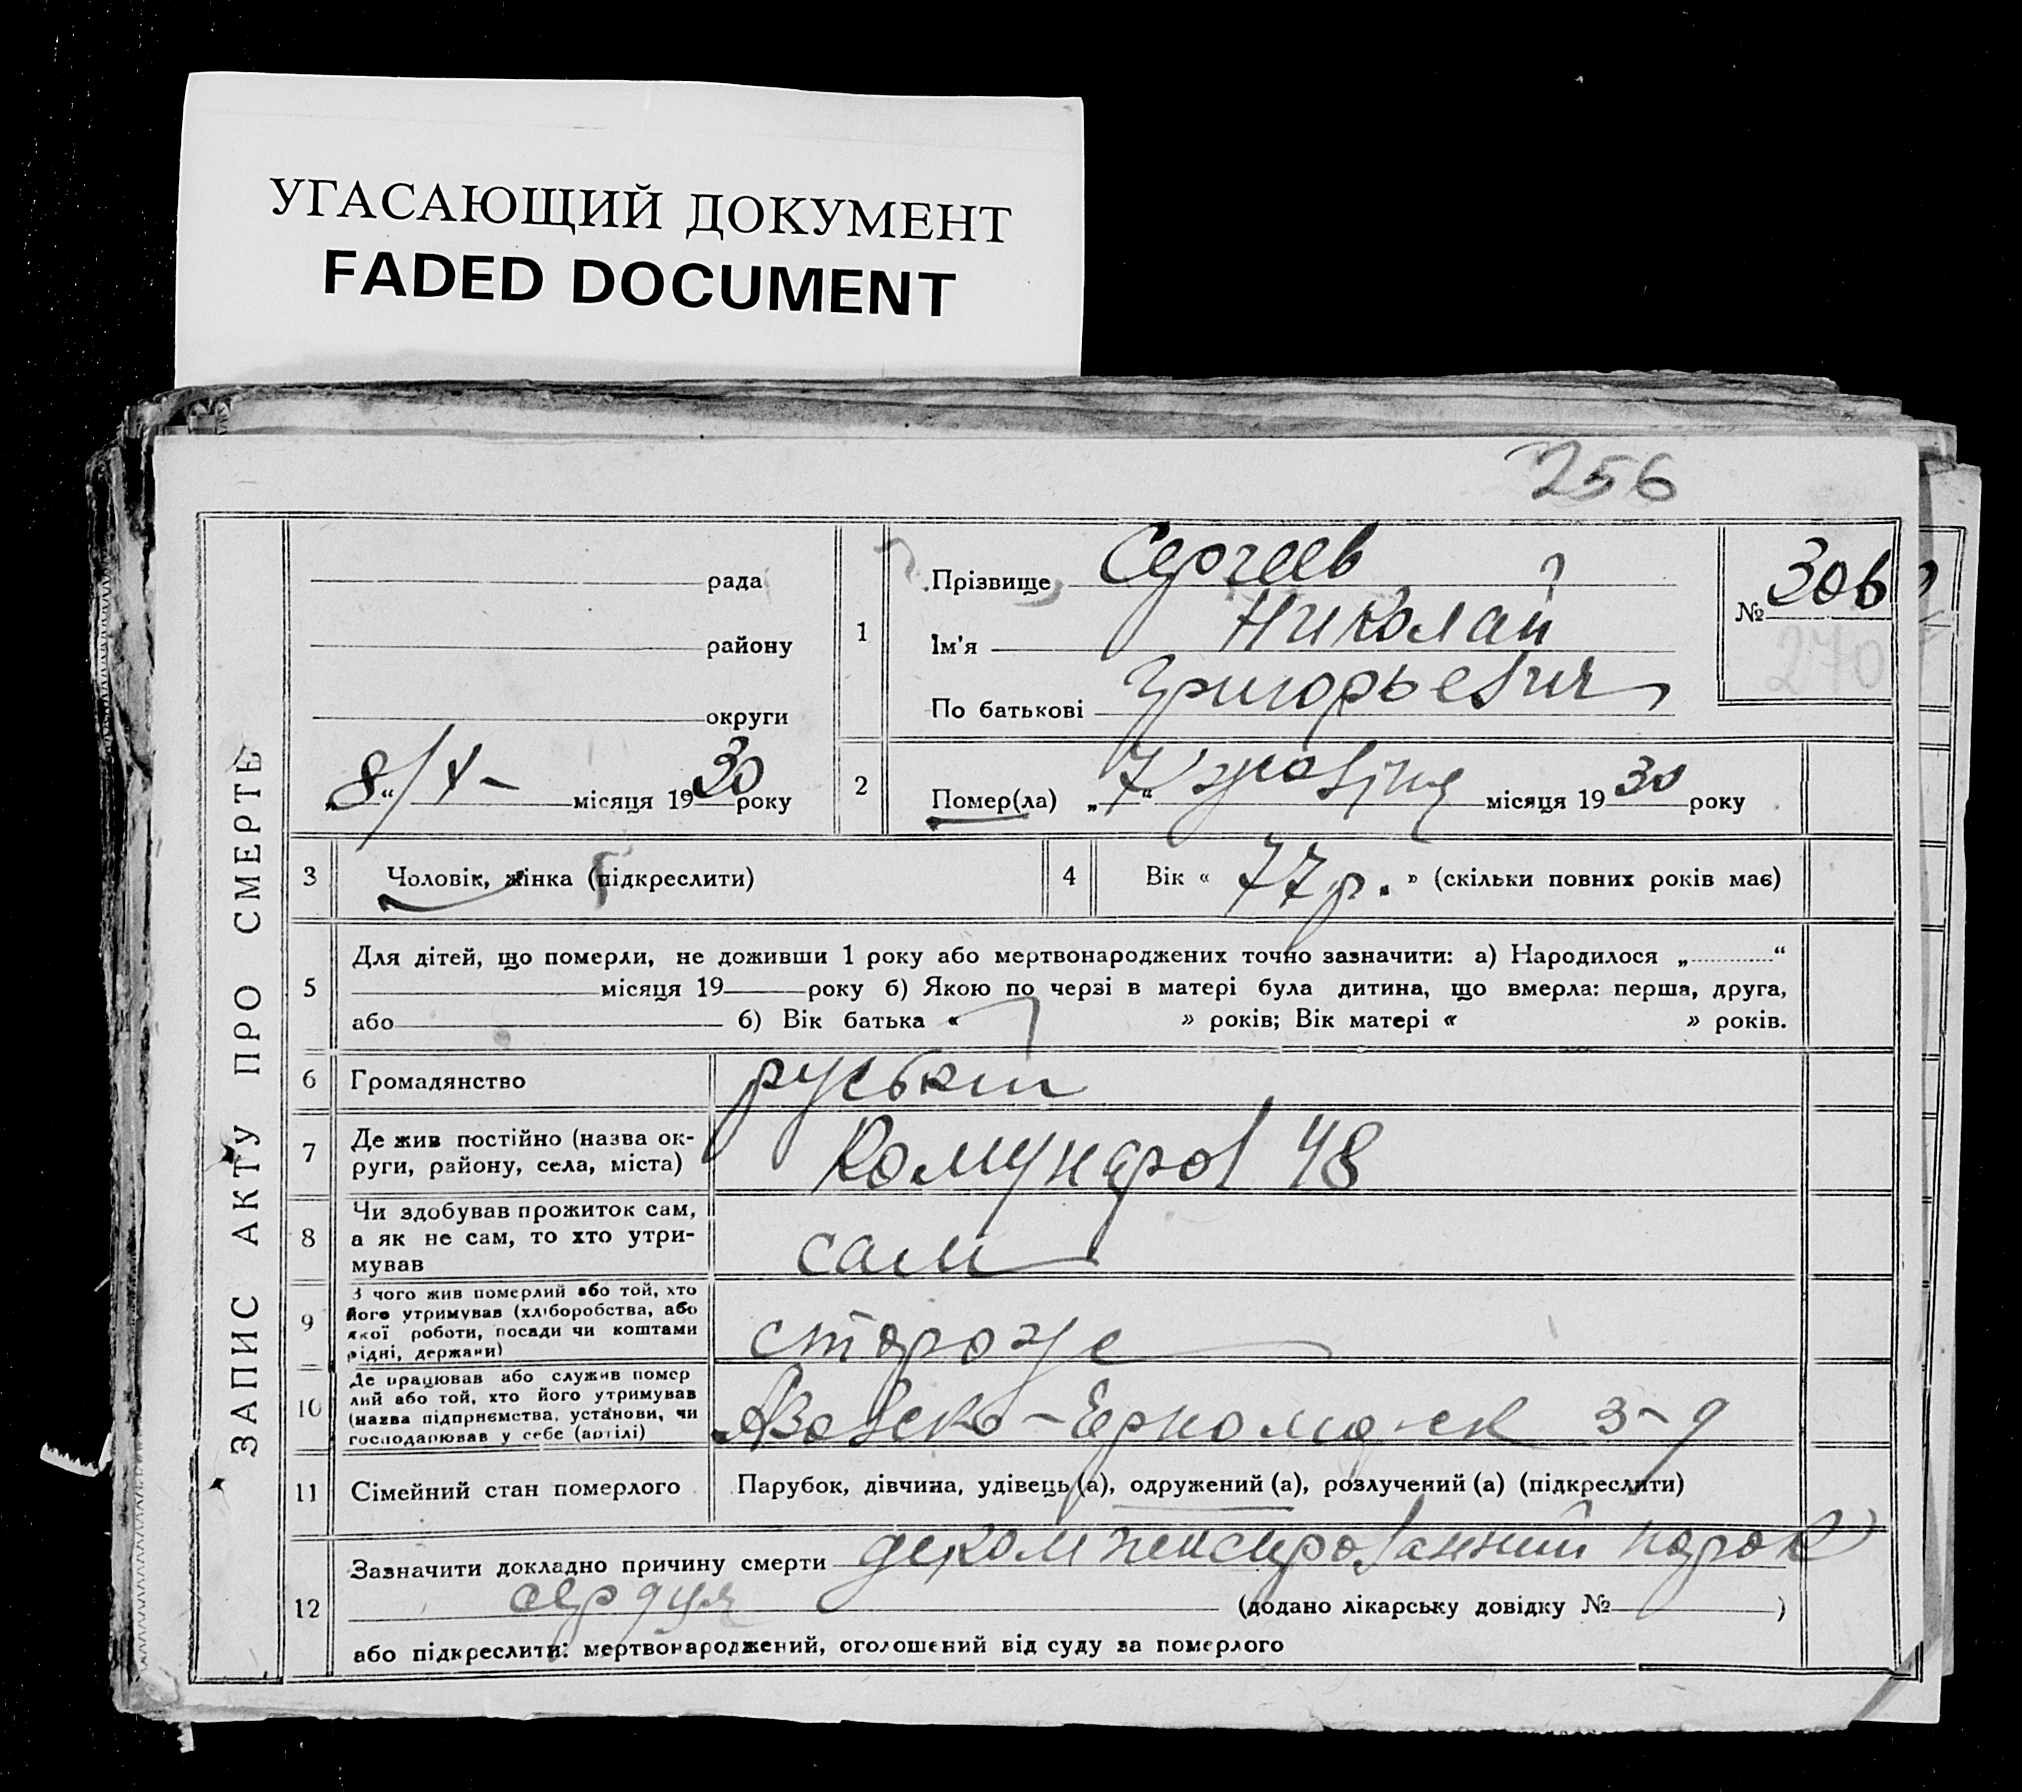 УГАСАЮЩИЙ ДОКУМЕНТ
FADED DOCUMENT
256
ЗАПИС АКТУ ПРО СМЕРТЬ
рада
району
округи
„8“/X- місяця 1930 року
1
Прізвище Сергеев
Ім'я Николай
По батькові Григорьевич
№ 306
270
2
Помер(ла) „7“ жовтня місяця 1930 року
3
Чоловік, жінка (підкреслити)
4
Вік « 77 р. » (скільки повних років має)
5
Для дітей, що померли, не доживши 1 року або мертвонароджених точно зазначити: а) Народилося „ “
місяця 19 року б) Якою по черзі в матері була дитина, що вмерла: перша, друга,
або б) Вік батька « » років; Вік матері « » років.
6
Громадянство
руський
7
Де жив постійно (назва ок-
руги, району, села, міста)
48
8
Чи здобував прожиток сам,
а як не сам, то хто утри-
мував
сам
9
З чого жив померлий або той, хто
його утримував (хліборобства, або
якої роботи, посади чи коштами
рідні, держави)
стороже
10
Де працював або служив помер
лий або той, хто його утримував
(назва підприємства, установи, чи
господарював у себе (артілі)
Азовско-Черноморск з-д
11
Сімейний стан померлого
Парубок, дівчина, удівець (а), одружений (а), розлучений (а) (підкреслити)
12
Зазначити докладно причину смерти декомпенсированний порок
сердця (додано лікарську довідку № )
або підкреслити: мертвонароджений, оголошений від суду за померлого